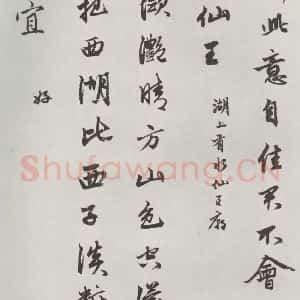 此意自佳君不會
仙王 湖上有水仙王廟
瀲灩晴方山色空濛
把西湖比西子淡粧
宜 好
Shufawang.CN